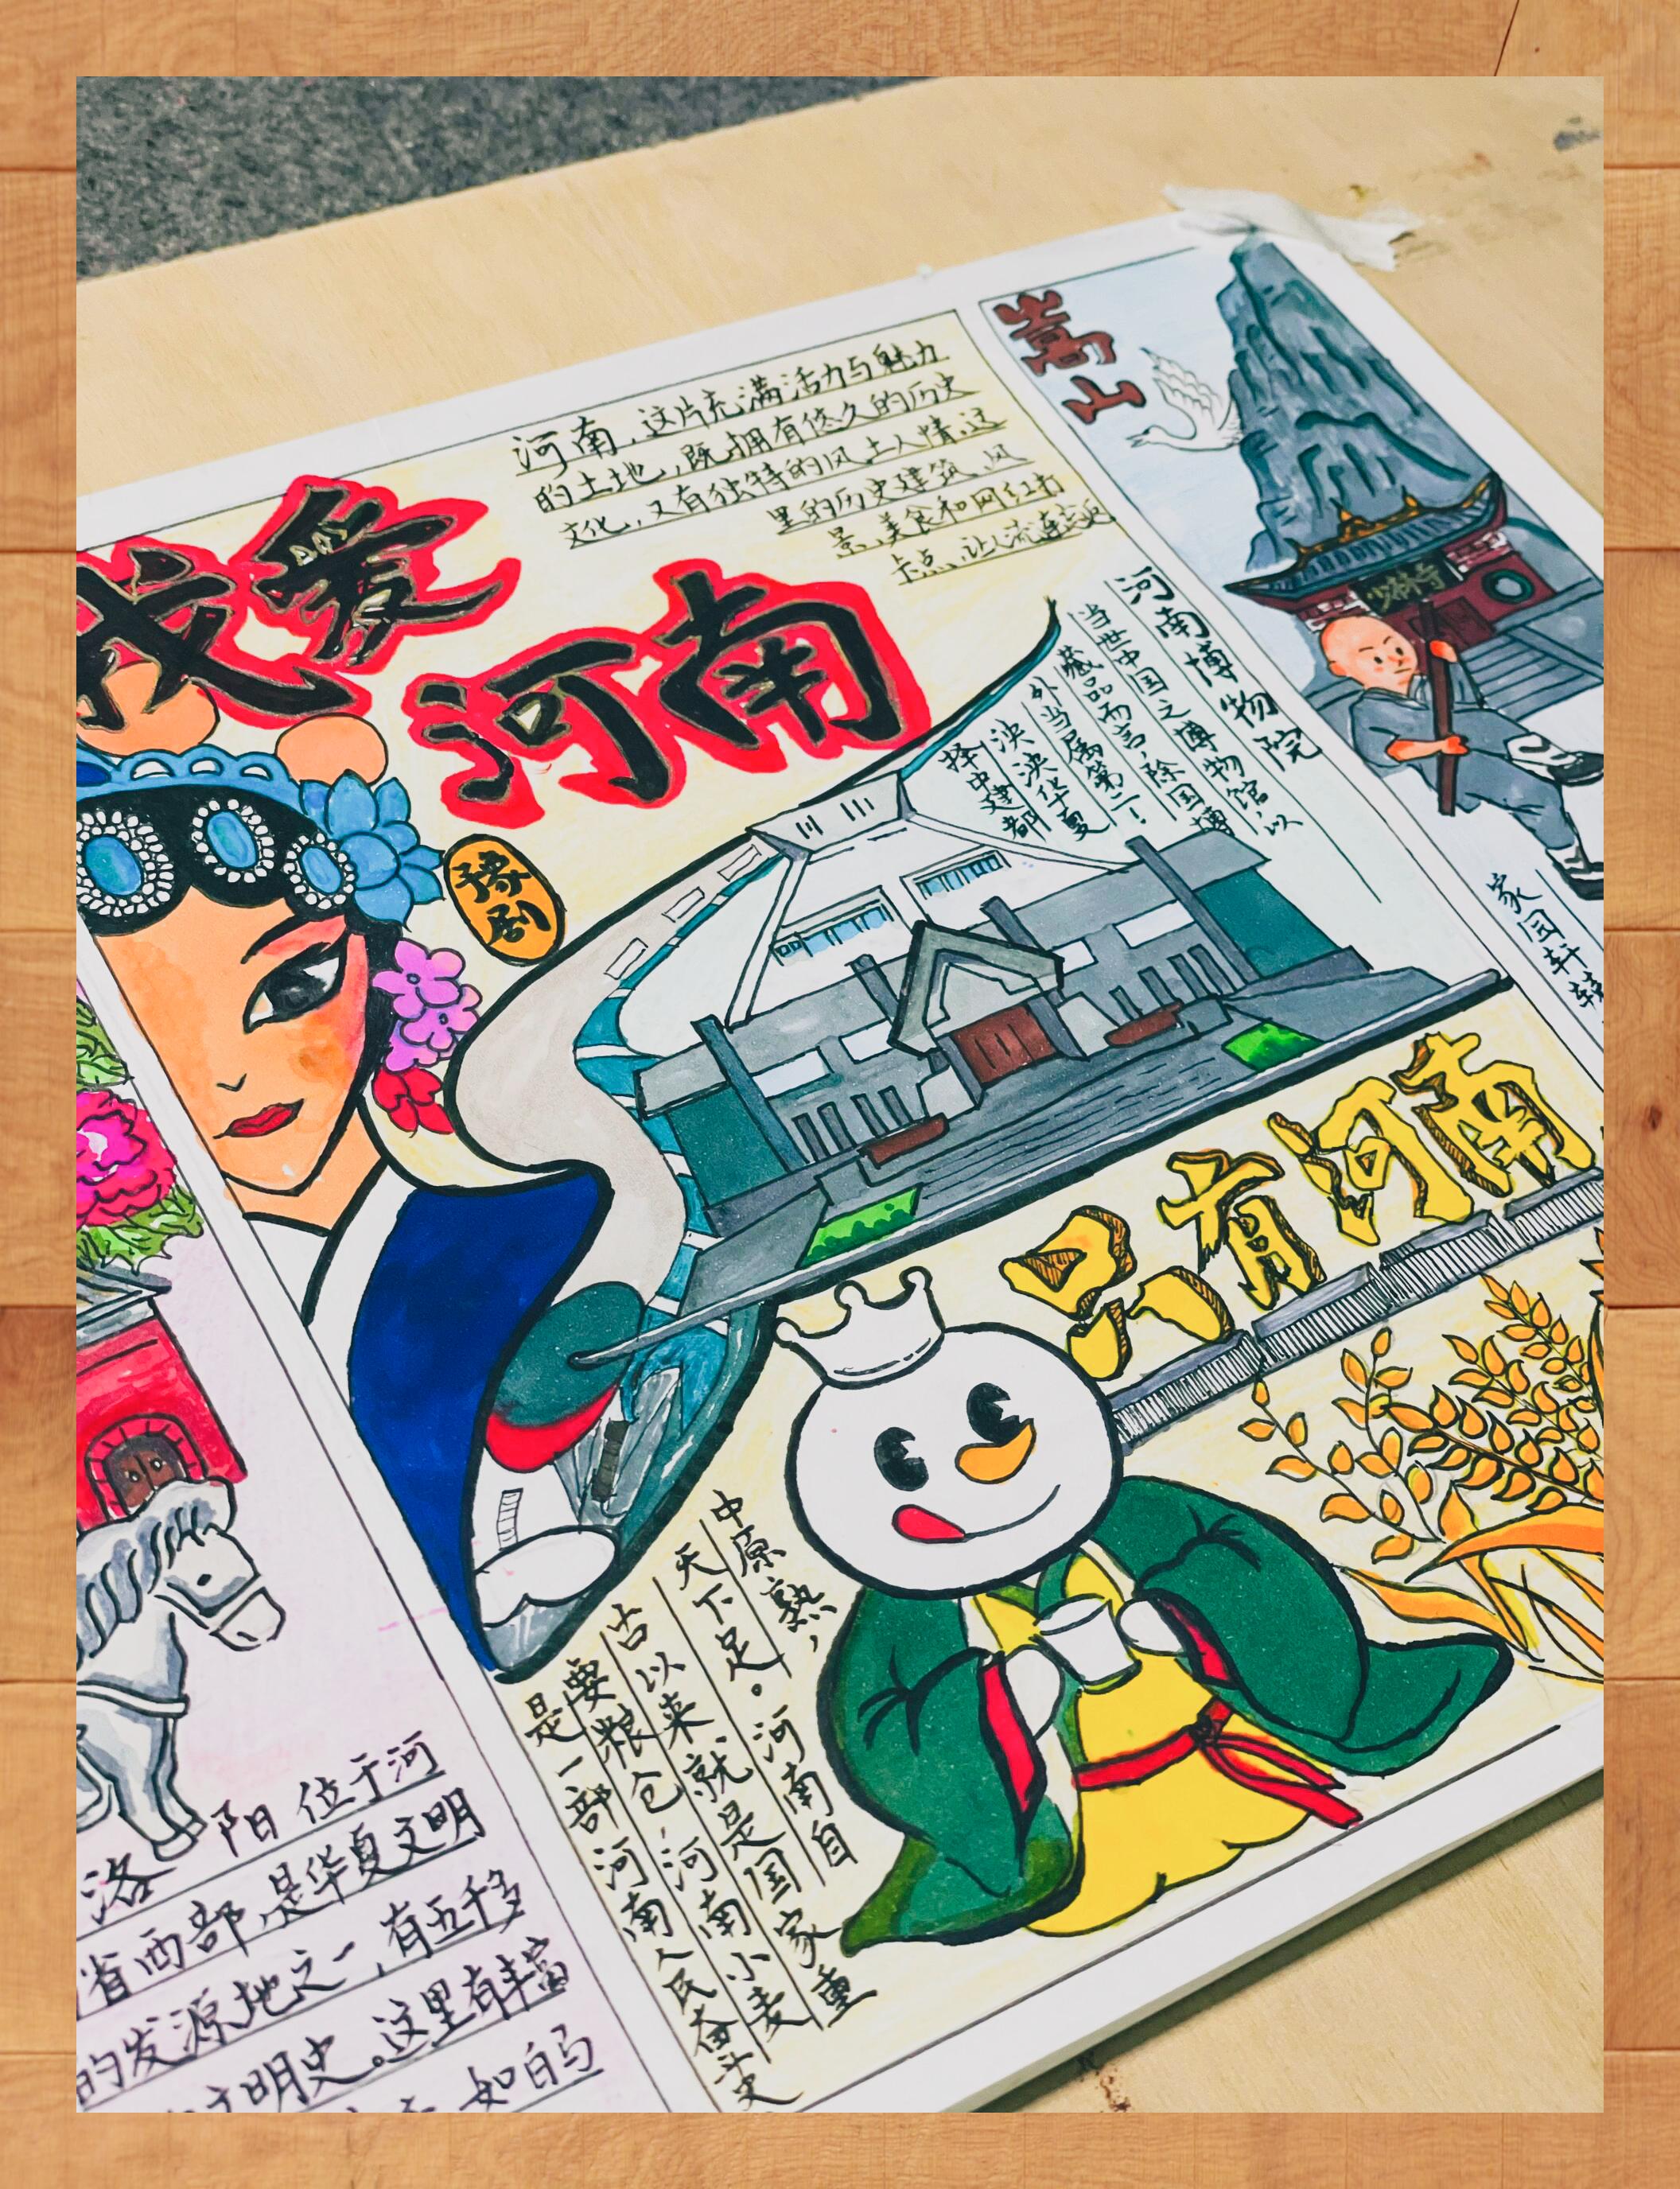 我爱
河南
河南，这片充满活力与魅力
的土地，既拥有悠久的历史
文化，又有独特的风土人情，这
里的历史建筑、风
景、美食和网红打
卡点，让人流连忘返
豫剧
河南博物院
当世中国之博物馆以
藏品而言，除国博
外当属第二！
泱泱华夏
择中建都
嵩山
少林寺
家国轩辕
只有河南
中原熟，
天下足。河南自
古以来就是国家重
要粮仓，河南小麦
是一部河南人民奋斗史
洛阳位于河
省西部，是华夏文明
的发源地之一，有五千多
文明史。这里有丰富
如白马